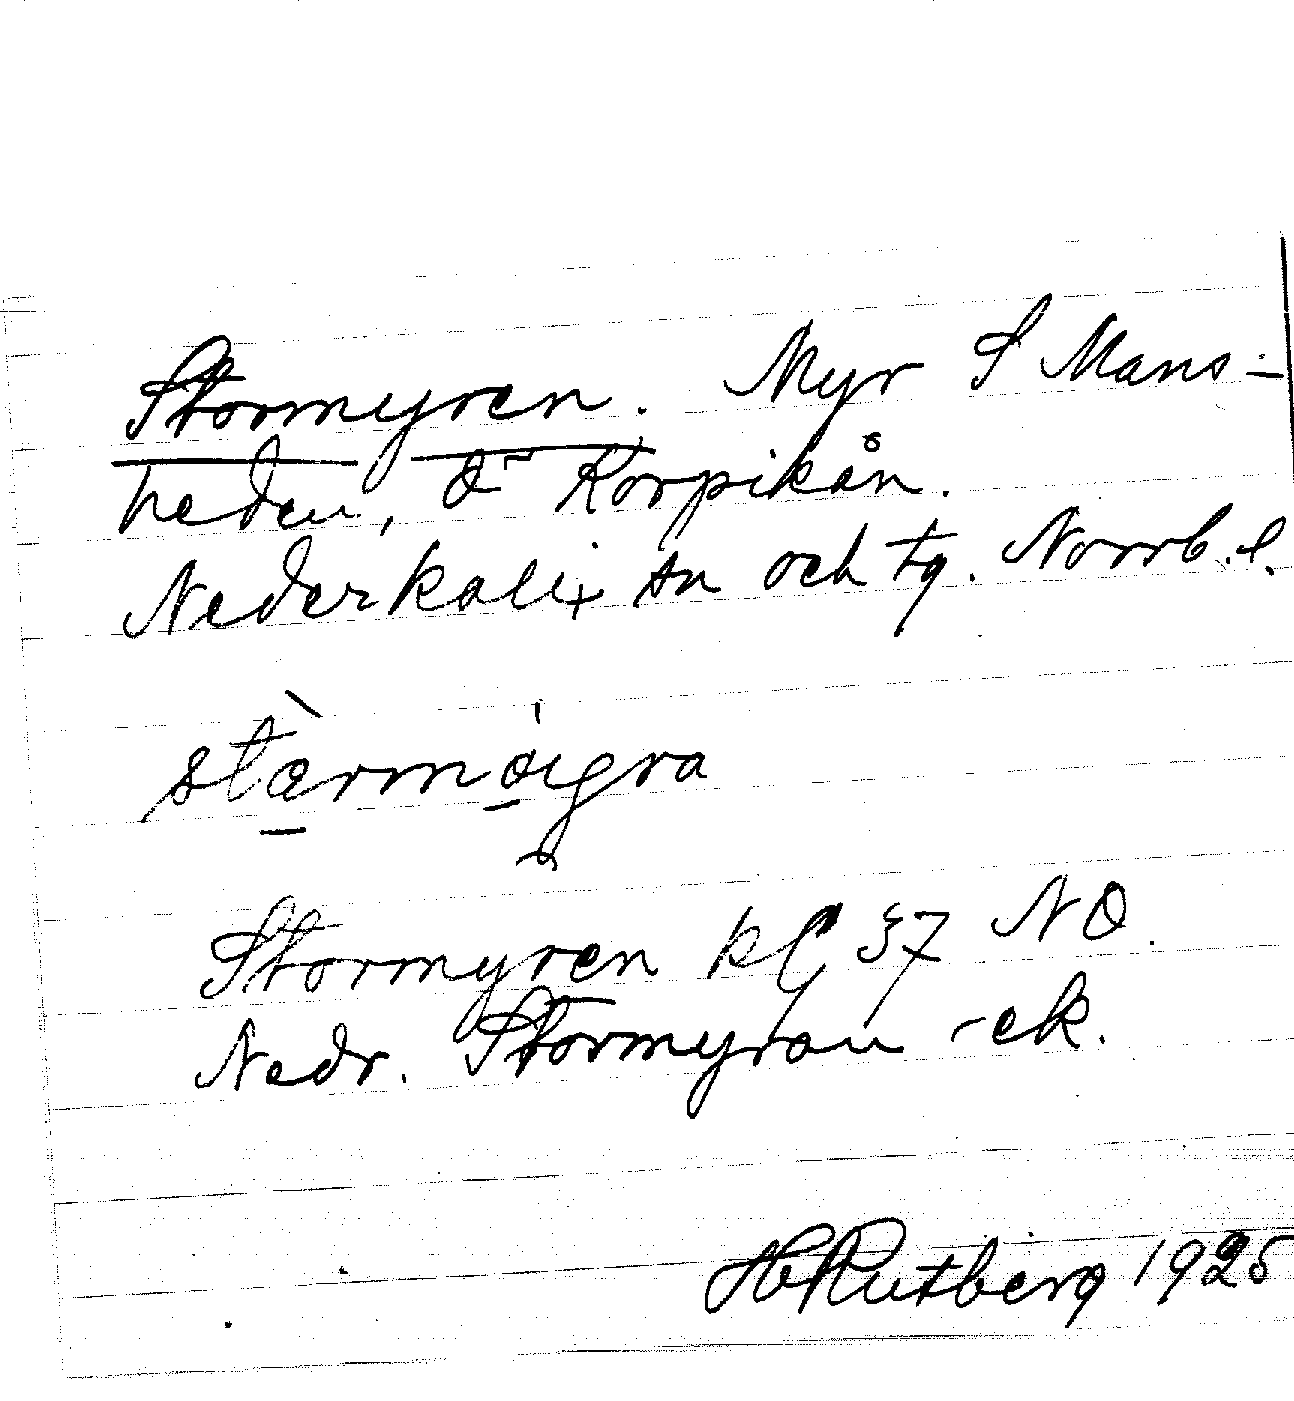 Stormyren. Myr S Mans-
heden, Ö Korpikån.
Nederkalix sn och tg. Norrb. l.
stærmøigra
Stormyren kl 37 NO.
Nedr. Stormyran -ek.
H Rutberg 1925